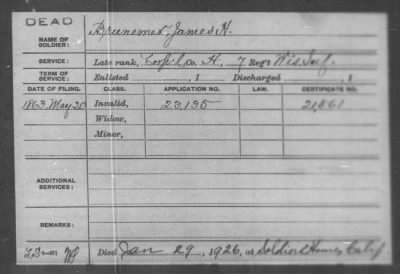 DEAD
NAME OF SOLDIER: Breenemer, James H.
SERVICE: Late rank, Corp'l, Co. H, 7 Reg't Wis. Inf.
TERM OF SERVICE: Enlisted , 1 Discharged , 1
DATE OF FILING. CLASS. APPLICATION NO. LAW. CERTIFICATE NO.
1863, May 20 Invalid, 23,135 21,861
Widow,
Minor,
ADDITIONAL SERVICES:
REMARKS:
Died Jan 29, 1926, at Soldiers Home, Calif